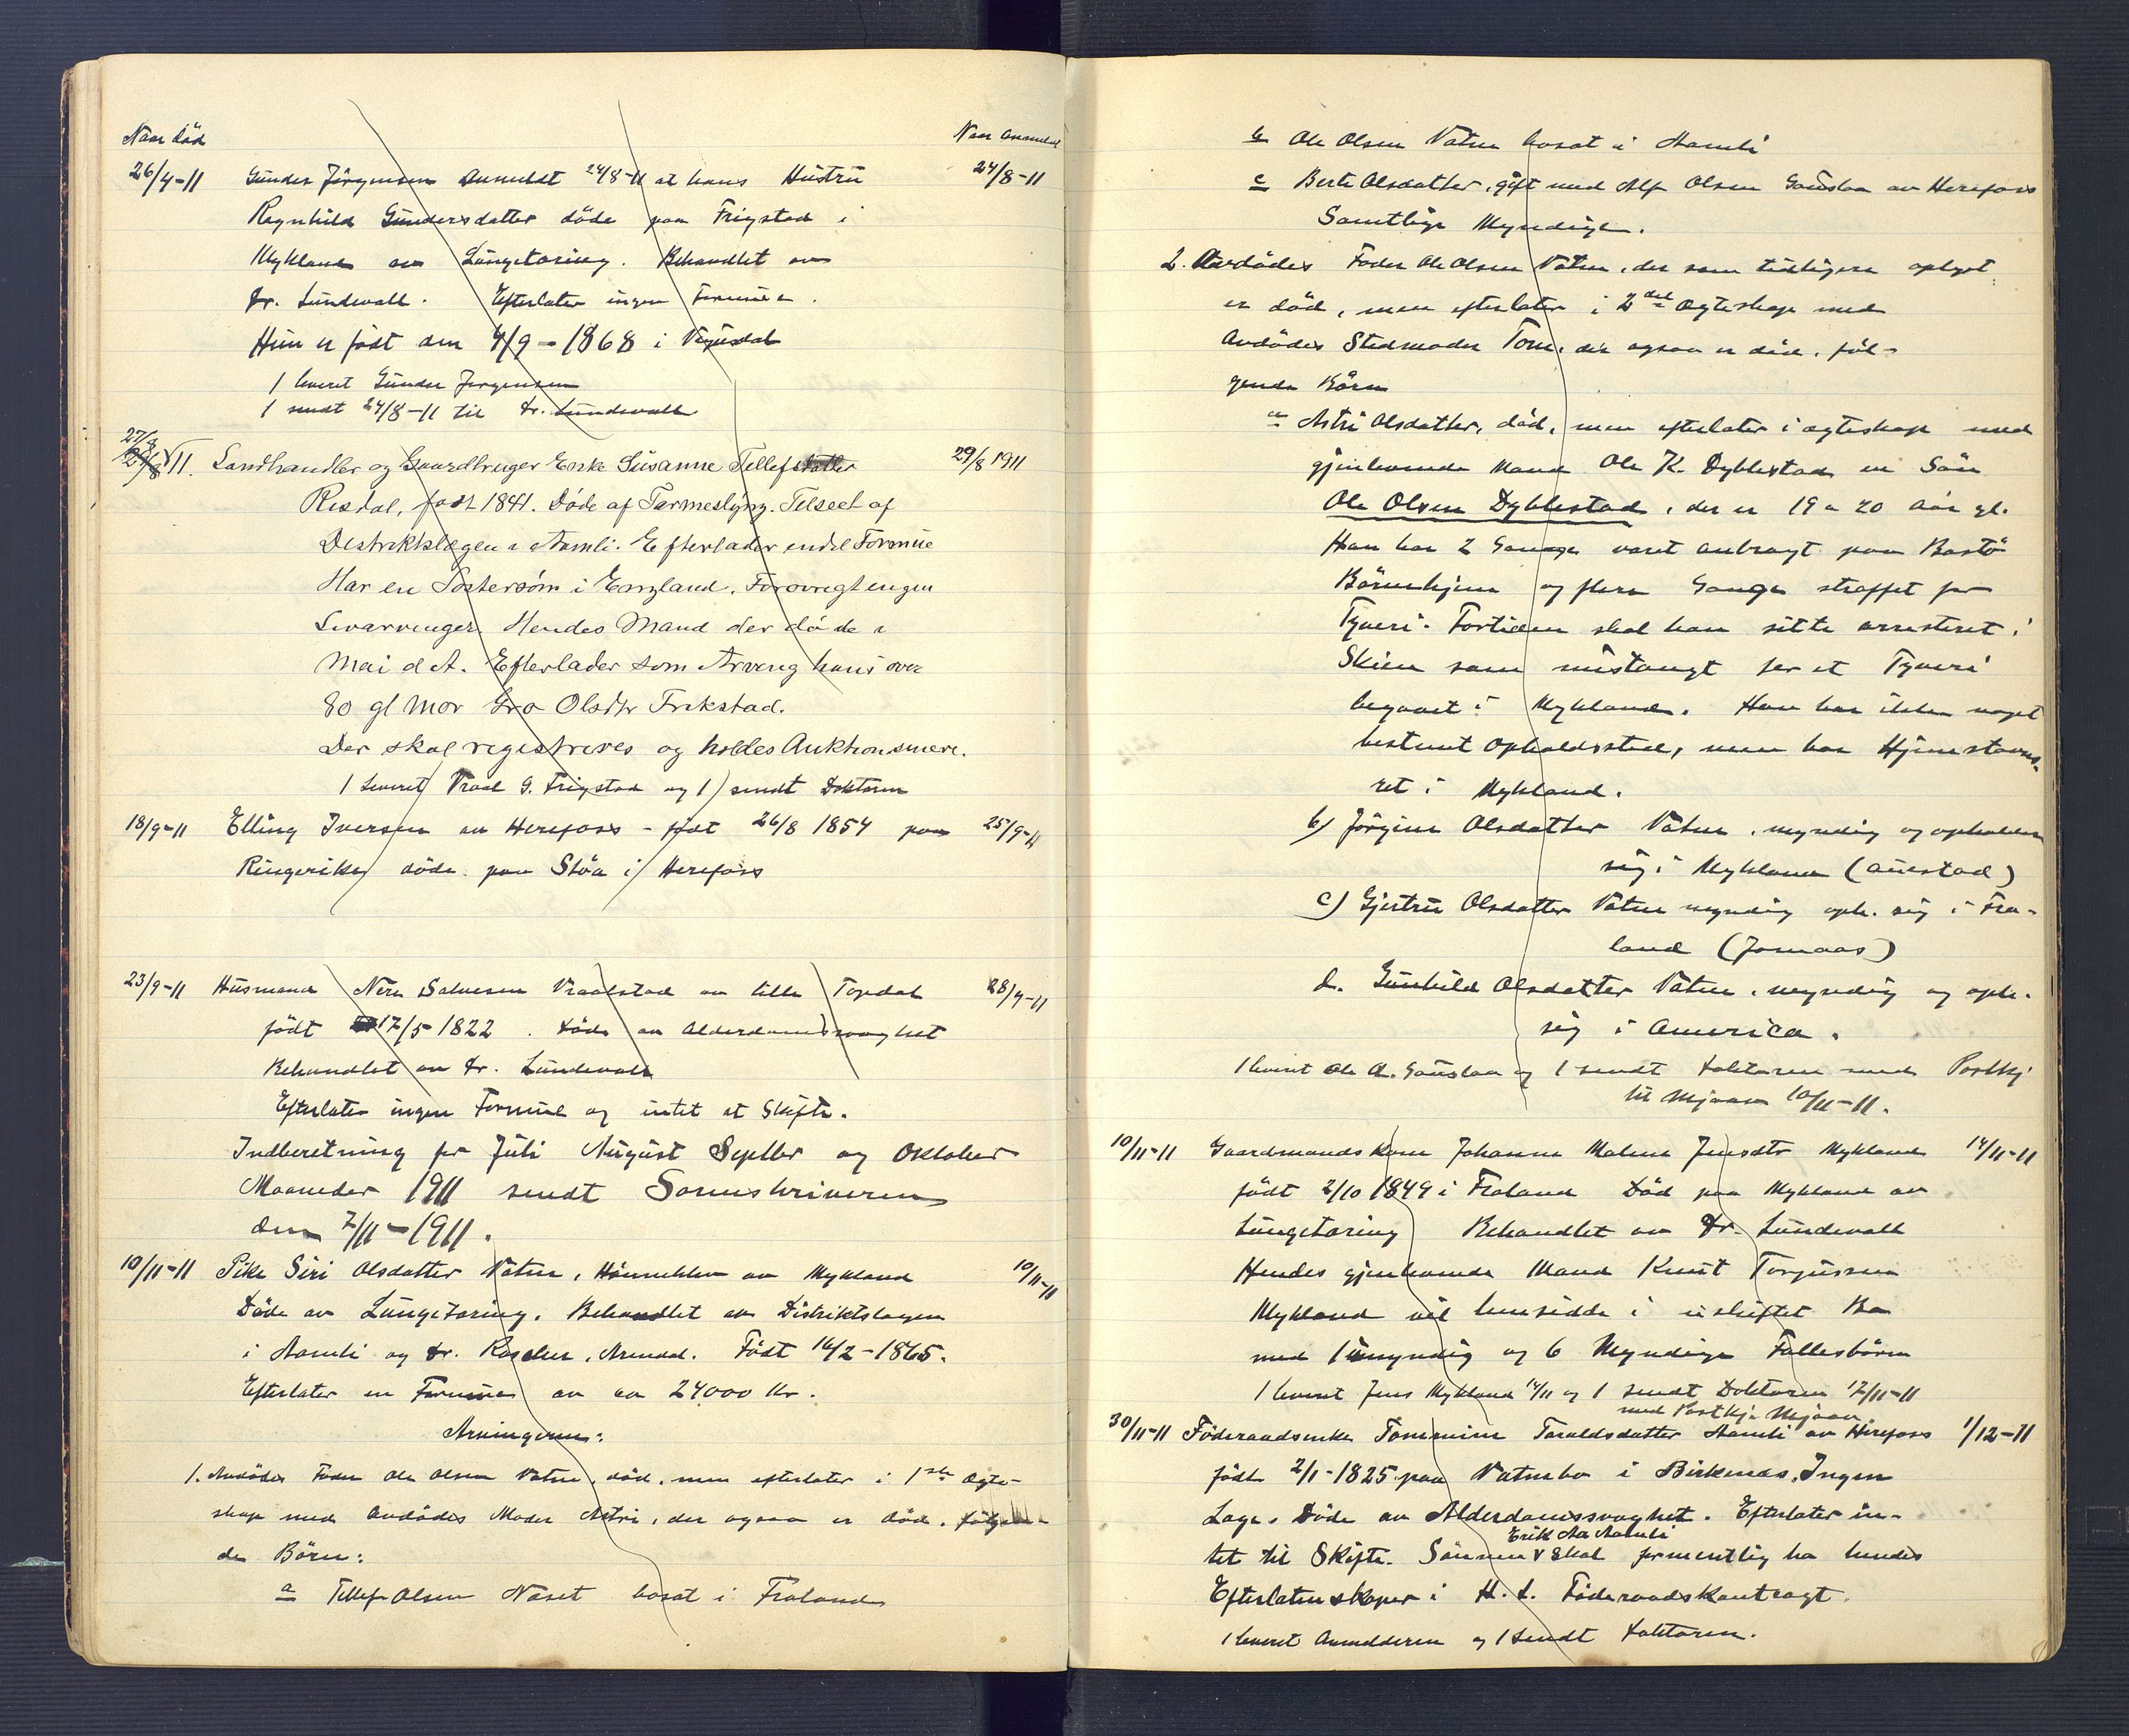 Naar död Naar anmeldt
26/4-11 Gunder Jörgensen Anmeldt 24/8-11 at hans Hustru 24/8-11
Ragnhild Gundersdatter döde paa Frigstad i
Mykland av Lungetæring. Behandlet av
Dr. Lundevall. Efterlater ingen Formue.
Hun er födt den 4/9-1868 i Vegusdal
1 leveret Gunder Jørgensen
1 sendt 24/8-11 til Dr. Lundevall
27/8 11. Landhandler og Gaardbruger Enke Susanne Tellefsdatter 29/8 1911
Risdal, født 1841. Døde af Tarmeslyng. Tilseet af
Distriktslægen i Aamli. Efterlader endel Formue
Har en Søstersøn i England. Forøvrigt ingen
Livarvinger. Hendes Mand der døde i
Mai d A. Efterlader som Arving hans over
80 gl Mor Gro Olsdtr Frikstad.
Der skal registreres og holdes Auktion m mere.
1 Leveret Vraal G. Frigstad og 1 sendt Doktoren
18/9-11 Elling Iversen av Herefoss - födt 26/8 1854 paa 25/9-11
Ringerike döde paa Stöa i Herefoss
23/9-11 Husmand Neri Salvesen Vraalstad av lille Topdal 28/9-11
födt 17/5 1822. Döde av Alderdomssvaghet
Behandlet av Dr. Lundevall
Efterlater ingen Formue og intet at Skifte.
Indberetning for Juli August Septbr og Oktober
Maaneder 1911 sendt Sorenskriveren
den 7/11-1911.
10/11-11 Pike Siri Olsdatter Vatne, Hönneklev av Mykland 10/11-11
Döde av Lungetæring. Behandlet av Distriktslægen
i Aamli og Dr. Røscher, Arendal. Födt 16/2-1865.
Efterlater en Formue av ca 24000 Kr.
Arvingerne:
1. Avdödes Fader Ole Olsen Vatne, död, men efterlater i 1ste Ægte-
skap med Avdödes Moder Astri, der ogsaa er död, fölgen-
de Börn:
a Tellef Olsen Næset bosat i Froland
b Ole Olsen Vatne bosat i Aamli
c Berte Olsdatter, gift med Alf Olsen Gauslaa av Herefoss
Samtlige Myndige.
2. Avdödes Fader Ole Olsen Vatne, der som tidligere oplyst
er död, men efterlater i 2det Ægteskap med
Avdödes Stedmoder Tone, der ogsaa er död, föl-
gende Börn
a Astri Olsdatter, död, men efterlater i ægteskap med
gjenlevende Mand Ole K. Dyblestad en Sön
Ole Olsen Dyblestad, der er 19 a 20 Aar gl.
Han har 2 Gange været anbragt paa Bastö
Börnehjem og flere Gange straffet for
Tyveri. Fortiden skal han sitte arresteret i
Skien som mistængt for et Tyveri
begaaet i Mykland. Han har ikke noget
bestemt Opholdssted, men har Hjemstavns-
ret i Mykland.
b) Jörgine Olsdatter Vatne, myndig og opholder
sig i Mykland (Auestad)
c) Gjertru Olsdatter Vatne myndig oph. sig i Fro-
land (Jomaas)
d. Gunhild Olsdatter Vatne, myndig og oph.
sig i America.
1 leveret Ole A. Gauslaa og 1 sendt Doktoren med Postkj
til Mjaava 10/11-11.
10/11-11 Gaardmandskone Johanne Malene Jensdtr Mykland 14/11-11
födt 2/10 1849 i Froland Död paa Mykland av
Lungetæring Behandlet av Dr. Lundevall
Hendes gjenlevende Mand Knut Torgussen
Mykland vil hensidde i uskiftet Bo
med 1 umyndig og 6 Myndige Fællesbörn
1 leveret Jens Mykland 14/11 og 1 sendt Doktoren 17/11-11
med Postkj. Mjaava
30/11-11 Föderaadsenke Tommine Taraldsdatter Aamli av Herefoss 1/12-11
födt 2/1-1825 paa Vatnebo i Birkenæs. Ingen
Læge. Döde av Alderdomssvaghet. Efterlater in-
tet til Skifte. Sönnen Erik Aa Aamli skal formentlig ha hendes
Efterlatenskaper i H. t. Föderaadskontragt.
1 leveret Anmelderen og 1 sendt Doktoren.